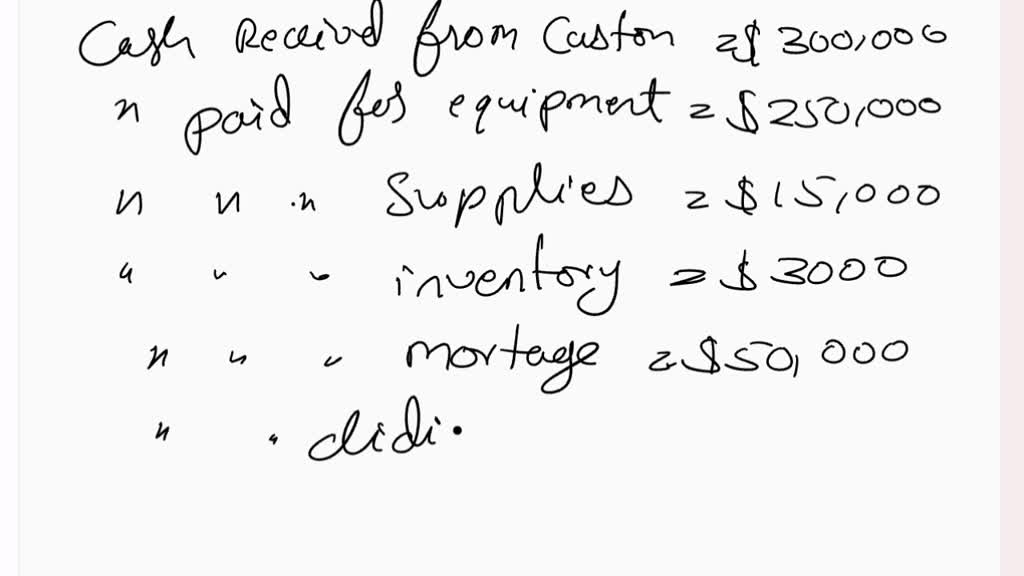 Cash Received from Caston =$ 300,000
n paid for equipment = $250,000
n n .n Supplies = $15,000
" " " inventory = $3000
n " " mortage =$50,000
n " didi.